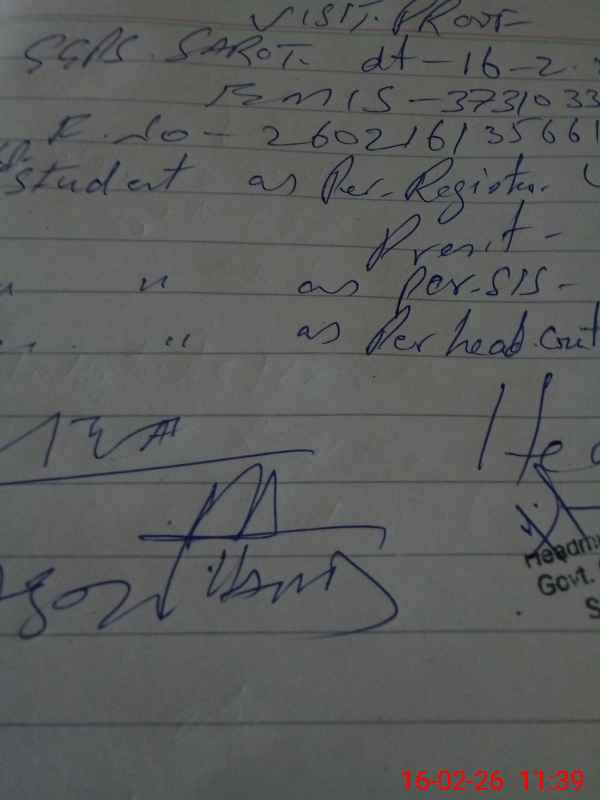 VISIT. PROOF
GGPS. SAROT. dt - 16-2.
EMIS - 3731033
F. No - 260216135661
student as Per-Register.
Present -
" as per-SIS -
" as Per head.count
MEA
Hea
Headm
Govt.
S
16-02-26 11:39